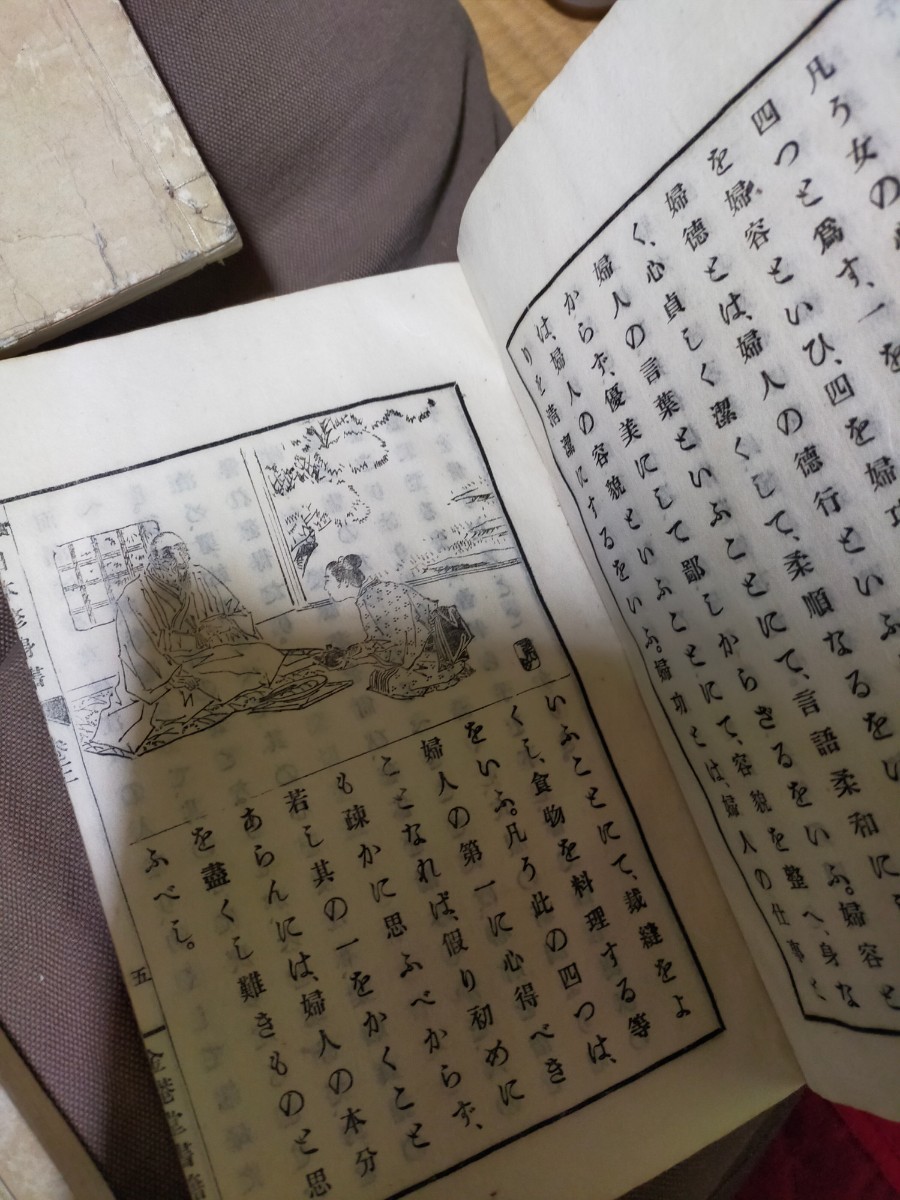 凡そ女の
四つと爲す、一を
を婦容といひ、四を婦功
婦德とは、婦人の德行といふ
く、心貞しく潔くして、柔順なるをい
婦人の言葉といふことにて、言語柔和に
からず、優美にして鄙しからざるをいふ。婦容と
は、婦人の容貌といふことにて、容貌を整へ、身な
りを淸潔にするをいふ。婦功とは、婦人の仕事と
いふことにて、裁縫をよ
くし、食物を料理する等
をいふ。凡そ此の四つは、
婦人の第一に心得べき
ことなれば、假り初めに
も疎かに思ふべからず、
若し其の一をかくこと
あらんには、婦人の本分
を盡くし難きものと思
ふべし。
修身書 卷之二
五
金港堂書籍